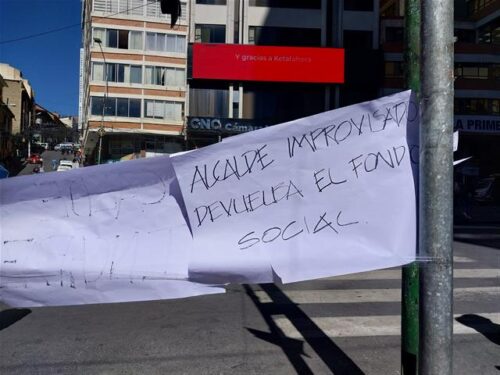 Y gracias a Ketalahora
CNC Cámara
A PRIME
ALCALDE IMPROVISADO
DEVUELVA EL FONDO
SOCIAL.